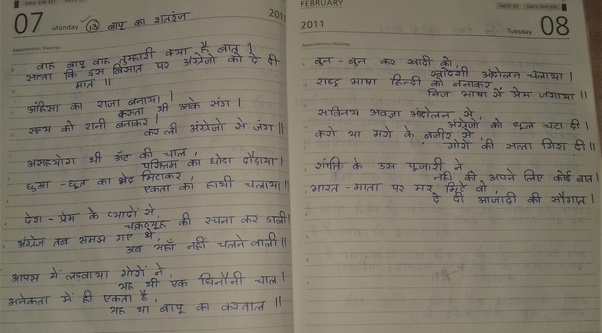 07 Monday
13 बापू का शतरंज
2011
Appointments / Meetings
वाह बापू वाह तुम्हारी क्या है बात ?
सत्ता कि इस बिसात पर अंग्रेजो को दे दी
मात ॥
अहिंसा का राजा बनाया ।
कस्तूरबा भी उनके संग ।
सत्य को रानी बनाकर
कर ली अंग्रेजो से जंग ॥
असहयोग थी ऊँट की चाल,
परिश्रम का घोड़ा दौड़ाया ।
छुआ-छूत का भेद मिटाकर,
एकता का हाथी चलाया ।
देश-प्रेम के प्यादों से,
चक्रव्यूह की रचना कर डाली ।
अंग्रेज तब समझ गए थे,
अब यहाँ नहीं चलने वाली ॥
आपस में लड़वाया गोरों ने,
यह थी एक घिनौनी चाल ।
अनेकता में ही एकता है,
यह था बापू का करताल ॥
FEBRUARY
2011
Tuesday 08
Appointments / Meetings
बुन-बुन कर खादी को,
स्वदेशी अंदोलन चलाया ।
राष्ट्र भाषा हिन्दी को बनाकर
निज भाषा में प्रेम जगाया ॥
सविनय अवज्ञा अंदोलन से,
अंग्रेजो को धूल चटा दी ।
करो या मरो के वजीर से
गोरों की सत्ता गिरा दी ॥
शांति के उस पूजारी ने,
नही की अपने लिए कोई बात ।
भारत-माता पर मर मिटे वो,
दे दी आजादी की सौगात ।